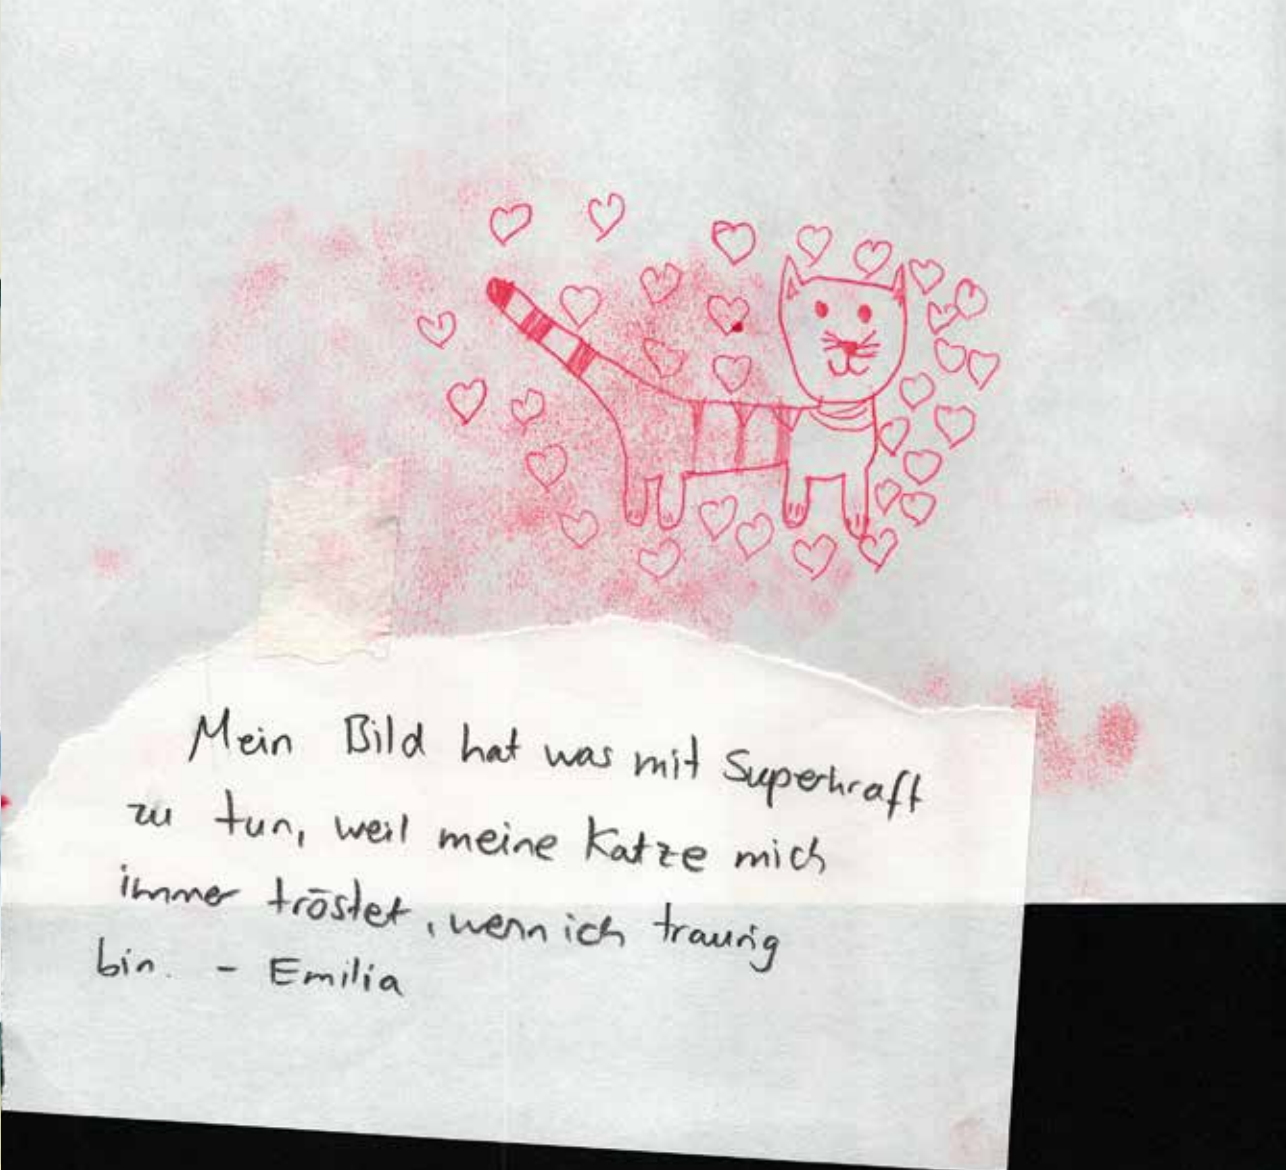 Mein Bild hat was mit Superkraft
zu tun, weil meine Katze mich
immer tröstet, wenn ich traurig
bin. - Emilia